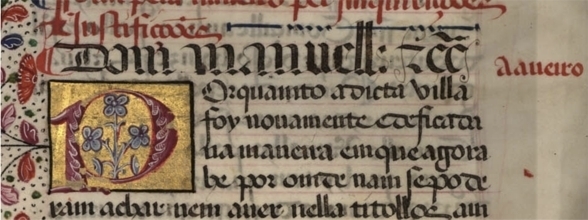 dam pera aueiro per Inquiriçoões
& Justificaçoões
Dom manuell: &c̃c̃
Aaueiro
Porquanto adicta villa
foy nouamente edeficada
na maneira em que agora
he por onde nam se pode
ram achar nem auer nella titollos an